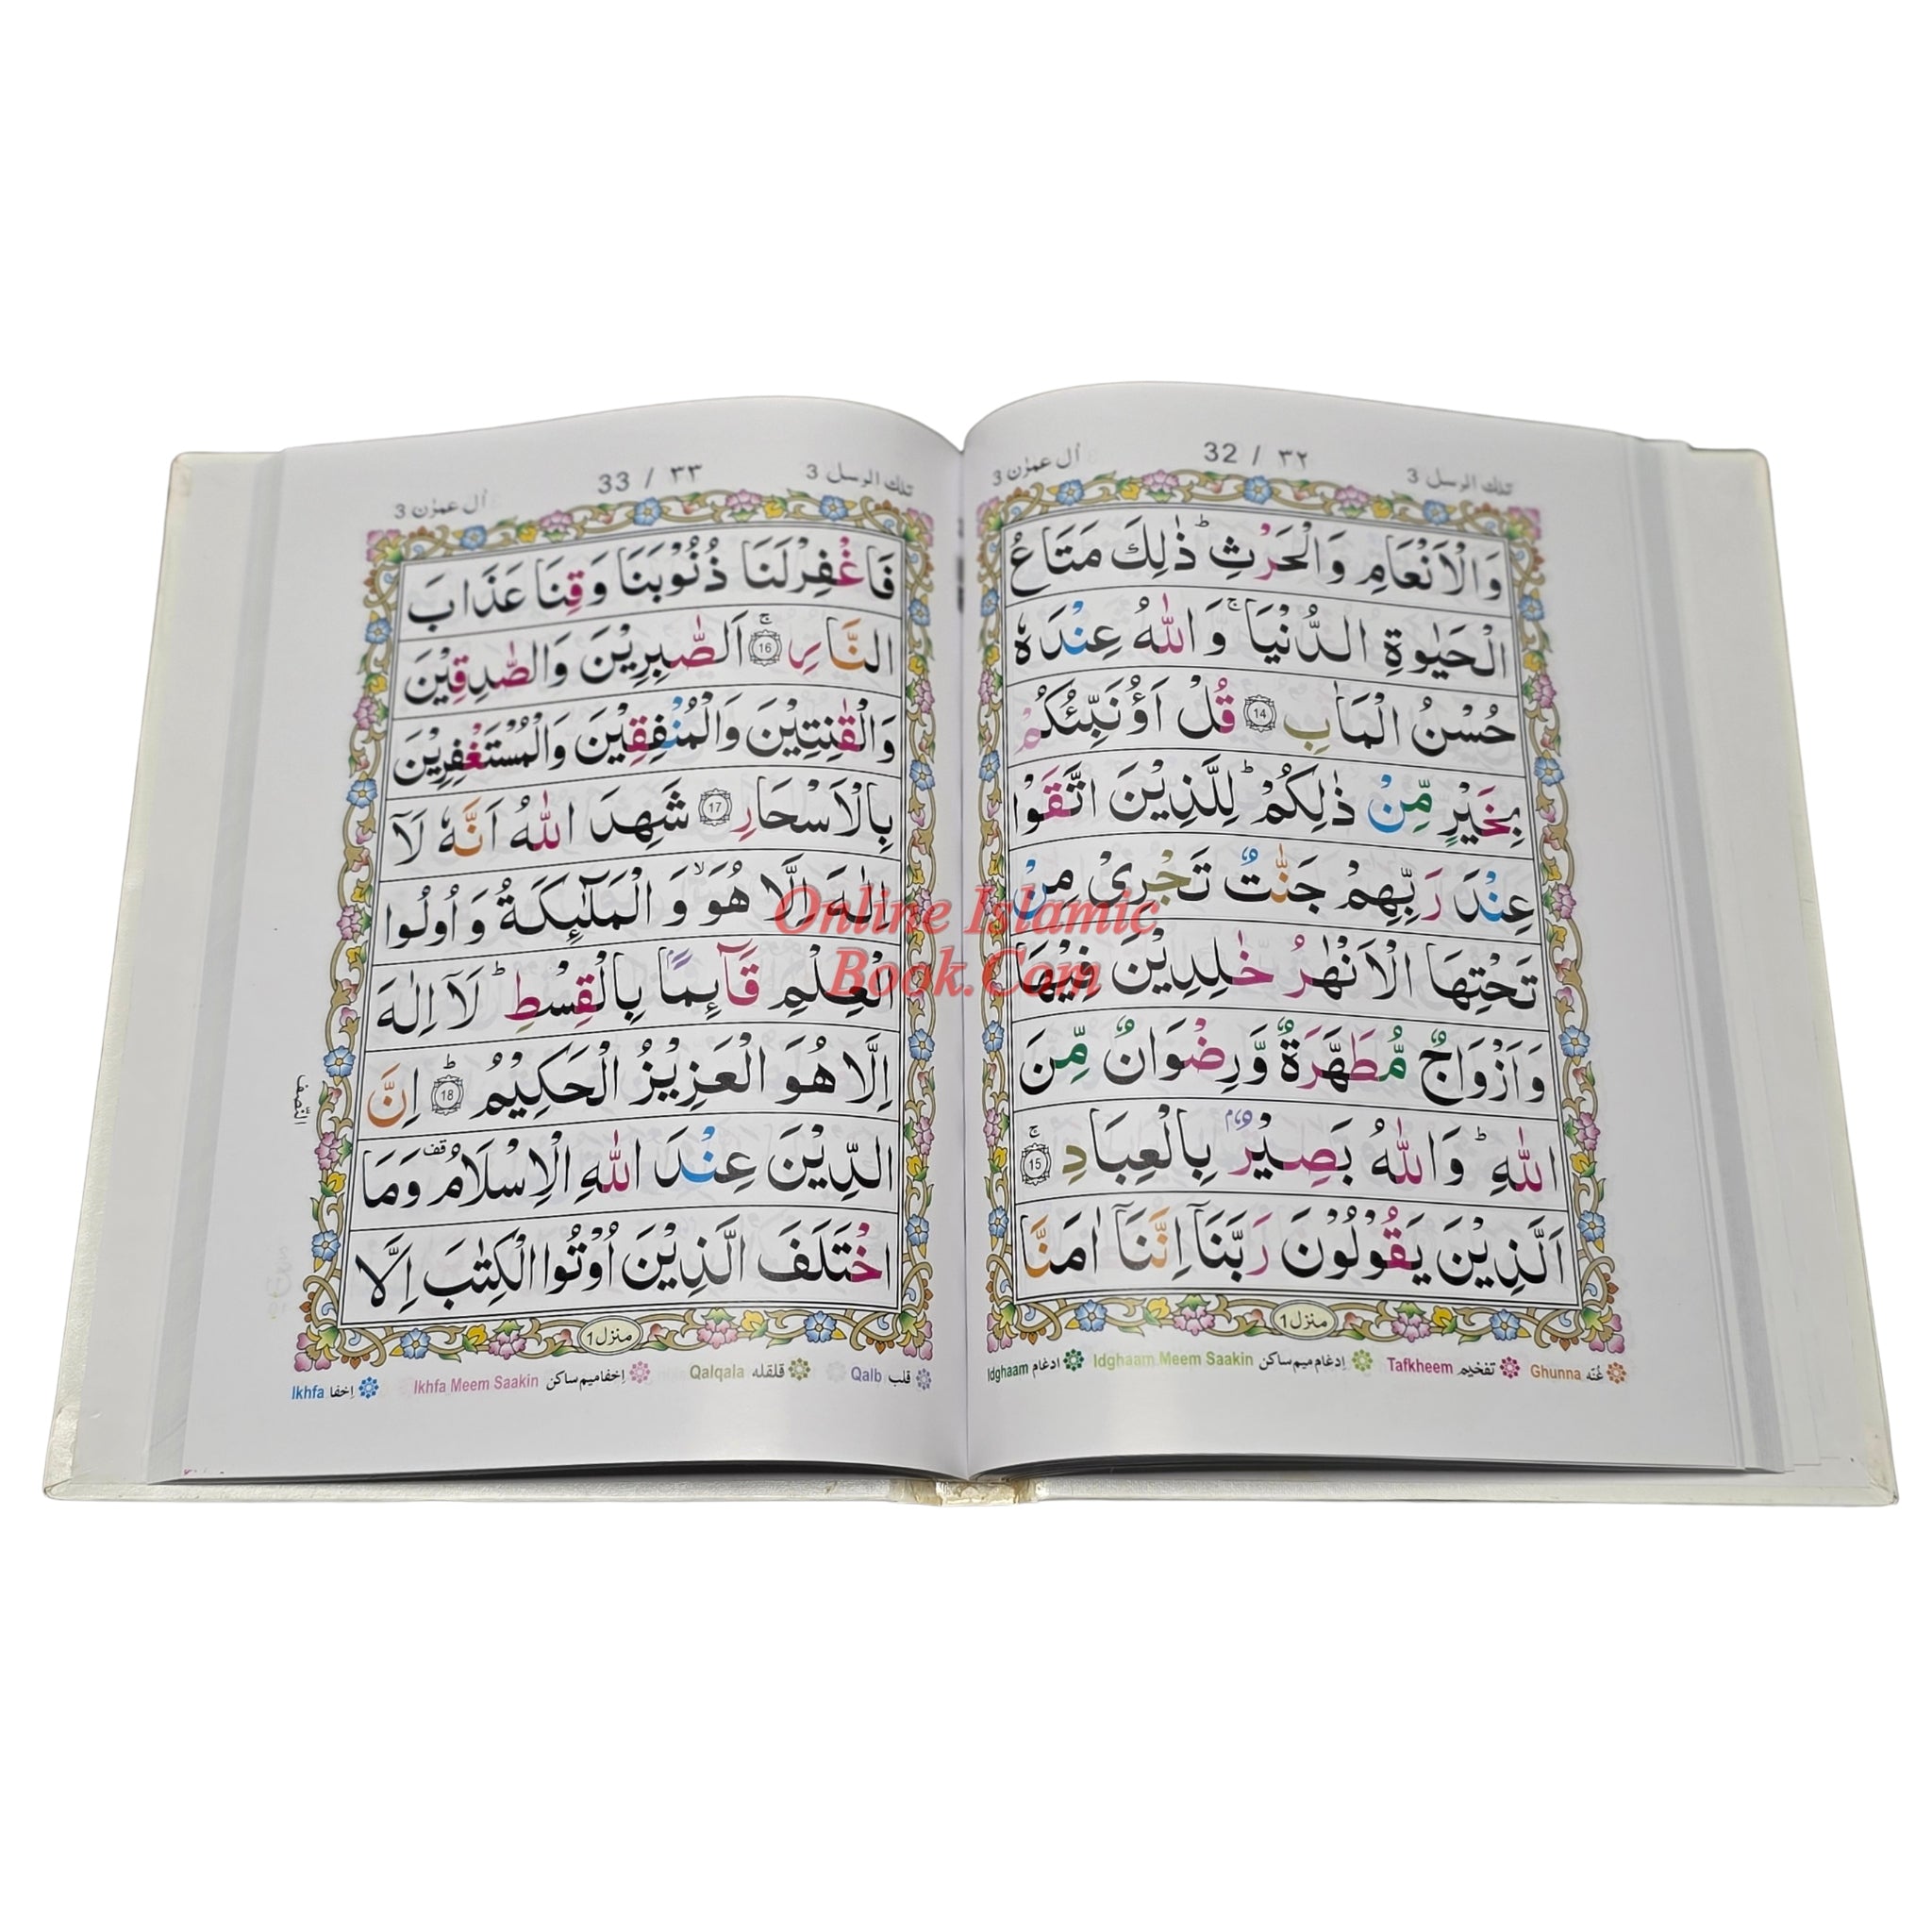 تلك الرسل 3
32 / ٣٢
اٰل عمرٰن 3
وَالْاَنْعَامِ وَالْحَرْثِ ؕ ذٰلِكَ مَتَاعُ
الْحَيٰوةِ الدُّنْيَا ۚ وَاللّٰهُ عِنْدَهٗ
حُسْنُ الْمَاٰبِ 14 قُلْ اَؤُنَبِّئُكُمْ
بِخَيْرٍ مِّنْ ذٰلِكُمْ ؕ لِلَّذِيْنَ اتَّقَوْا
عِنْدَ رَبِّهِمْ جَنّٰتٌ تَجْرِىْ مِنْ
تَحْتِهَا الْاَنْهٰرُ خٰلِدِيْنَ فِيْهَا
وَاَزْوَاجٌ مُّطَهَّرَةٌ وَّرِضْوَانٌ مِّنَ
اللّٰهِ ؕ وَاللّٰهُ بَصِيْرٌۢ بِالْعِبَادِ ۚ 15
اَلَّذِيْنَ يَقُوْلُوْنَ رَبَّنَاۤ اِنَّنَاۤ اٰمَنَّا
منزل 1
Ghunna غُنّه Tafkheem تفخيم Idghaam Meem Saakin اِدغام ميم ساكن Idghaam ادغام
تلك الرسل 3
33 / ٣٣
اٰل عمرٰن 3
فَاغْفِرْلَنَا ذُنُوْبَنَا وَقِنَا عَذَابَ
النَّارِ ۚ 16 اَلصّٰبِرِيْنَ وَالصّٰدِقِيْنَ
وَالْقٰنِتِيْنَ وَالْمُنْفِقِيْنَ وَالْمُسْتَغْفِرِيْنَ
بِالْاَسْحَارِ 17 شَهِدَ اللّٰهُ اَنَّهٗ لَاۤ
اِلٰهَ اِلَّا هُوَ ۙ وَالْمَلٰٓئِكَةُ وَاُولُوا
الْعِلْمِ قَآئِمًاۢ بِالْقِسْطِ ؕ لَاۤ اِلٰهَ
اِلَّا هُوَ الْعَزِيْزُ الْحَكِيْمُ ؕ 18 اِنَّ
الدِّيْنَ عِنْدَ اللّٰهِ الْاِسْلَامُ قف وَمَا
اخْتَلَفَ الَّذِيْنَ اُوْتُوا الْكِتٰبَ اِلَّا
النّصف
منزل 1
Qalb قلب Qalqala قلقله Ikhfa Meem Saakin اِخفا ميم ساكن Ikhfa اِخفا
Online Islamic
Book.Com